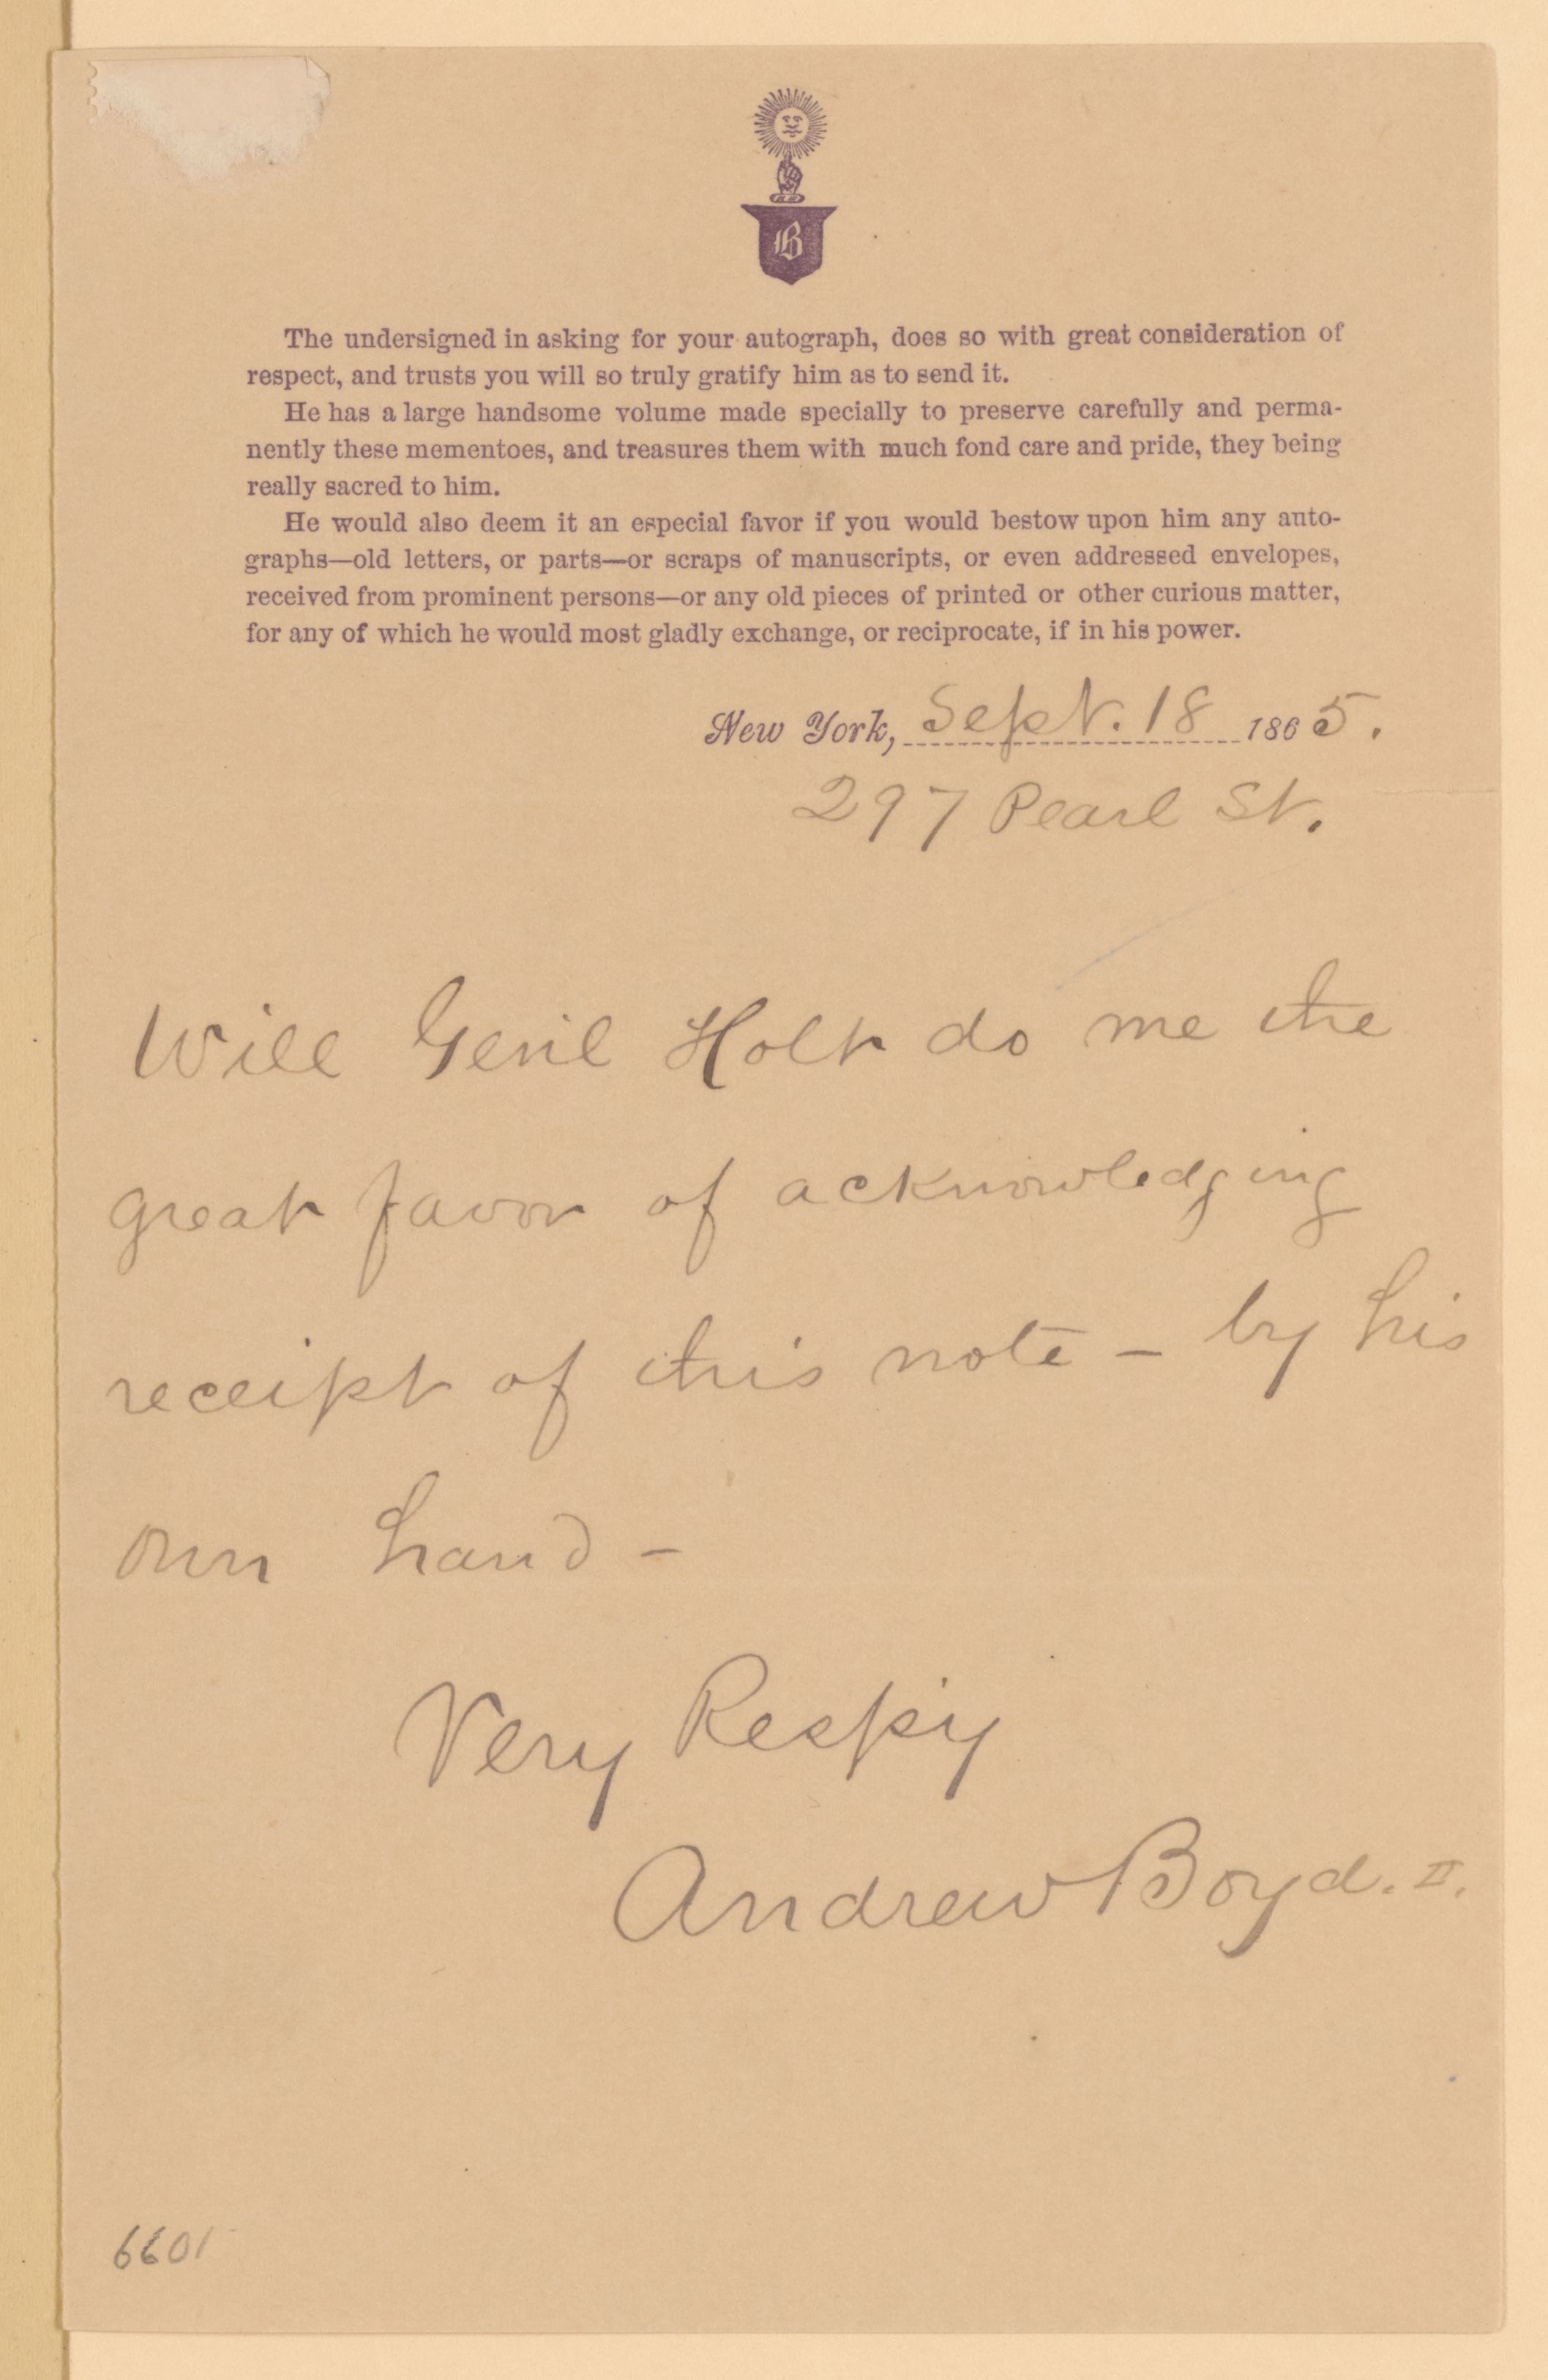 B
The undersigned in asking for your autograph, does so with great consideration of
respect, and trusts you will so truly gratify him as to send it.
He has a large handsome volume made specially to preserve carefully and perma-
nently these mementoes, and treasures them with much fond care and pride, they being
really sacred to him.
He would also deem it an especial favor if you would bestow upon him any auto-
graphs—old letters, or parts—or scraps of manuscripts, or even addressed envelopes,
received from prominent persons—or any old pieces of printed or other curious matter,
for any of which he would most gladly exchange, or reciprocate, if in his power.
New York, Sept. 18 1865.
297 Pearl St.
Will Genl Holt do me the
great favor of acknowledging
receipt of this note – by his
own hand –
Very Respy
Andrew Boyd. II.
6601